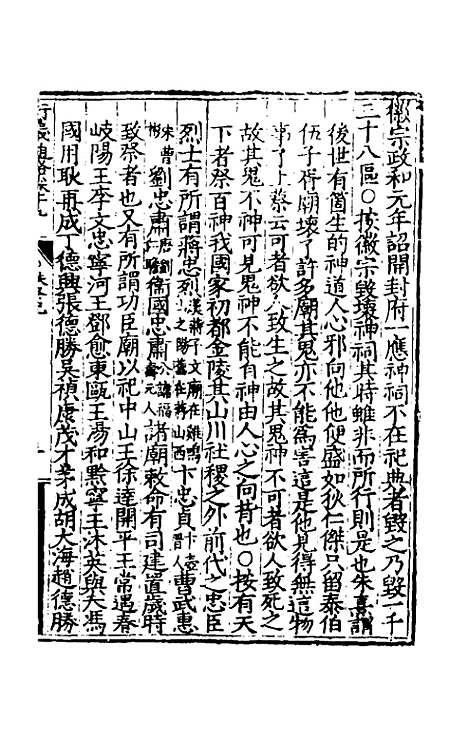 徽宗政和元年詔開封府一應神祠不在祀典者毀之乃毀一千
三十八區○按徽宗毀壞神祠其時雖非而所行則是也朱熹謂
後世有箇生的神道人心邪向他他便盛如狄仁傑只留泰伯
伍子胥廟壞了許多廟其鬼亦不能為害這是他見得無這物
事了上蔡云可者欲人致生之故其鬼神不可者欲人致死之
故其鬼不神可見鬼神不能有神由人心之向背也○按有天
下者祭百神我國家初都金陵其山川社稷之外前代之忠臣
烈士有所謂蔣忠烈漢蔣子文廟在雞鳴山之陽舊在蔣山西卞忠貞晉人卞壼曹武惠
宋曹彬劉忠肅唐劉仁瞻衞國忠肅公諱福壽元人諸廟敕命有司建置歲時
致祭者也又有所謂功臣廟以祀中山王徐達開平王常遇春
岐陽王李文忠寧河王鄧愈東甌王湯和黔寧王沐英與夫馮
國用耿再成丁德興張德勝吳禎康茂才茅成胡大海趙德勝